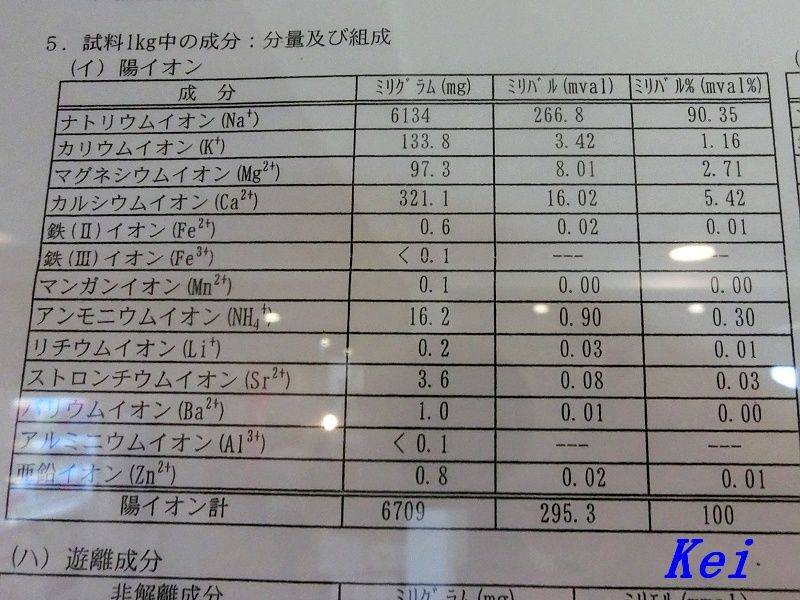 5. 試料1kg中の成分：分量及び組成
(イ) 陽イオン
成 分 ミリグラム(mg) ミリバル(mval) ミリバル%(mval%)
ナトリウムイオン(Na⁺) 6134 266.8 90.35
カリウムイオン(K⁺) 133.8 3.42 1.16
マグネシウムイオン(Mg²⁺) 97.3 8.01 2.71
カルシウムイオン(Ca²⁺) 321.1 16.02 5.42
鉄(II)イオン(Fe²⁺) 0.6 0.02 0.01
鉄(III)イオン(Fe³⁺) < 0.1 --- ---
マンガンイオン(Mn²⁺) 0.1 0.00 0.00
アンモニウムイオン(NH₄⁺) 16.2 0.90 0.30
リチウムイオン(Li⁺) 0.2 0.03 0.01
ストロンチウムイオン(Sr²⁺) 3.6 0.08 0.03
バリウムイオン(Ba²⁺) 1.0 0.01 0.00
アルミニウムイオン(Al³⁺) < 0.1 --- ---
亜鉛イオン(Zn²⁺) 0.8 0.02 0.01
陽イオン計 6709 295.3 100
(ハ) 遊離成分
非解離成分 ミリグラム(mg) ミリモル(mmol)
Kei